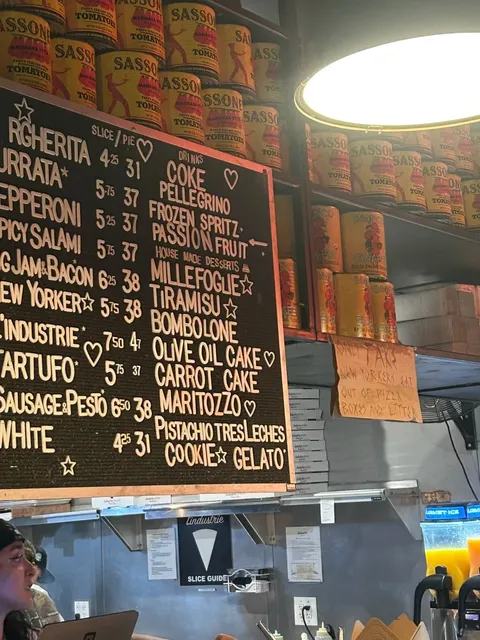 SASSO
TOMATO
SASSONE
TOMATO
SLICE/PIE
RGHERITA 4.25 31
URRATA* 5.75 37
EPPERONI 5.25 37
PICY SALAMI 5.75 37
G JAM & BACON 6.25 38
EW YORKER 5.75 38
L'INDUSTRIE* 7.50 47
TARTUFO 5.75 37
SAUSAGE & PESTO 6.50 38
WHITE 4.25 31
DRINKS
COKE
PELLEGRINO
FROZEN SPRITZ
PASSION FRUIT
HOUSE MADE DESSERTS
MILLEFOGLIE
TIRAMISU
BOMBOLONE
OLIVE OIL CAKE
CARROT CAKE
MARITOZZO
PISTACHIO TRES LECHES
COOKIE GELATO
OUT OF PIZZA
lindustrie
SLICE GUIDE